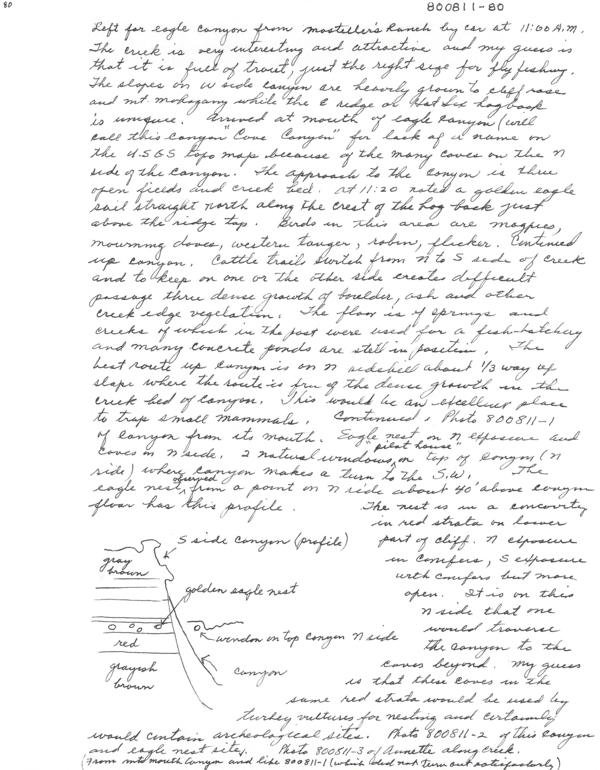 80
800811-80
Left for eagle canyon from Mosteller's Ranch by car at 11:00 A.M.
The creek is very interesting and attractive and my guess is
that it is full of trout, just the right size for fly fishing.
The slopes on W side canyon are heavily grown to cliff rose
and mt mahogany while the E ridge or Hat Six hogback
is unique. Arrived at mouth of eagle canyon (will
call this canyon "Cove Canyon" for lack of a name on
the USGS topo map because of the many caves on the N
side of the canyon. The approach to the canyon is thru
open fields and creek bed. At 11:20 noted a golden eagle
sail straight north along the crest of the hog back just
above the ridge top. Birds in this area are magpies,
mourning doves, western tanger, robin, flicker. Continued
up canyon. Cattle trails switch from N to S side of creek
and to keep on one or the other side creates difficult
passage thru dense growth of boulder, ash and other
creek edge vegetation. The flow is of springs and
creeks of which in the past were used for a fish-hatchery
and many concrete ponds are still in position. The
best route up canyon is on N sidehill about 1/3 way up
slope where the route is free of the dense growth in the
creek bed of canyon. This would be an excellent place
to trap small mammals. Continued. Photo 800811-1
of canyon from its mouth. Eagle nest on N exposure and
caves on N side. 2 natural windows, "pilot house" on top of canyon (N
side) where canyon makes a turn to the S.W. The
eagle nest, observed from a point on N side about 40' above canyon
floor has this profile. The nest is in a concavity
in red strata on lower
part of cliff. N exposure
in conifers, S exposure
with conifers but more
open. It is on this
N side that one
would traverse
the canyon to the
caves beyond. My guess
is that these caves in the
same red strata would be used by
turkey vultures for nesting and certainly
would contain archeological sites. Photo 800811-2 of this canyon
and eagle nest site. Photo 800811-3 of Annette along creek.
(From mts mouth canyon and like 800811-1 (which did not turn out satisfactorily)
S side canyon (profile)
gray
brown
golden eagle nest
window on top canyon N side
red
grayish
brown
canyon